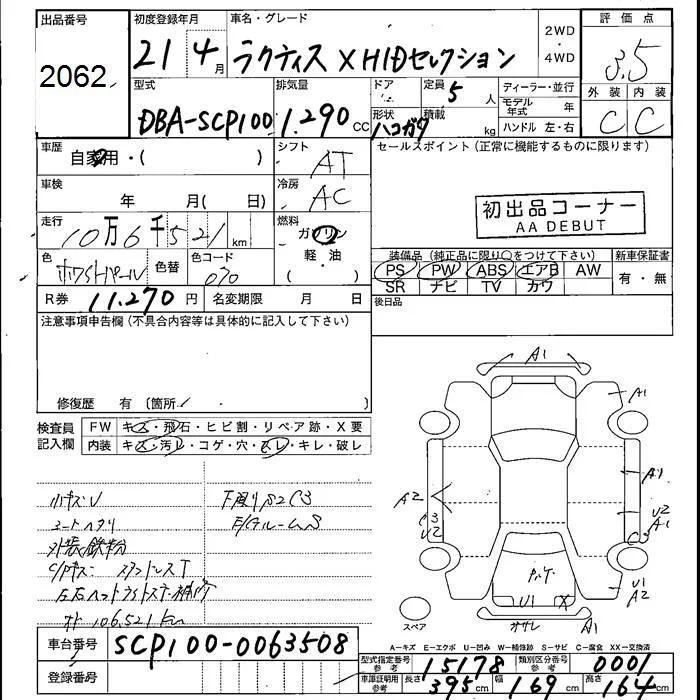 出品番号 初度登録年月 車名・グレード 2WD・4WD 評価点
2062 21 4月 ラクティス X HIDセレクション 3.5
型式 排気量 ドア 定員 5人 ディーラー・並行 外装 内装
DBA-SCP100 1.290cc 形状 ハコガタ 積載 kg モデル年式 年 C C
ハンドル 左・右
車歴 自家用・( ) シフト AT セールスポイント(正常に機能するものに限ります)
車検 年 月( 日) 冷房 AC 初出品コーナー
AA DEBUT
走行 10万6千521km 燃料 ガソリン
軽・油
・( )
色 ホワイトパール 色替 色コード 070 装備品(純正品に限り○をつけて下さい) 新車保証書
PS PW ABS エアB AW 有・無
SR ナビ TV カワ
R券 11.270円 名変期限 月 日 後日品
注意事項申告欄(不具合内容等は具体的に記入して下さい)
修復歴 有 (箇所
検査員記入欄 FW キズ・飛石・ヒビ割・リペア跡・X要
内装 キズ・汚レ・コゲ・穴・スレ・キレ・破レ
小キズU 下廻りS2C3
シートヘタリ E/GルームS
外装鉄粉
左右ヘッドライト
106,521km
A1
A1
A1
A2
U2
A1
C3
U2
C3
U1
A2
U1 X
スペア A1
A-キズ E-エクボ U-凹み W-補修跡 S-サビ C-腐食 XX-交換済
車台番号 SCP100-0063508
型式指定番号 参考 15178 類別区分番号 参考 0001
登録番号 車庫証明用 参考 長さ 395cm 幅 169cm 高さ 164cm